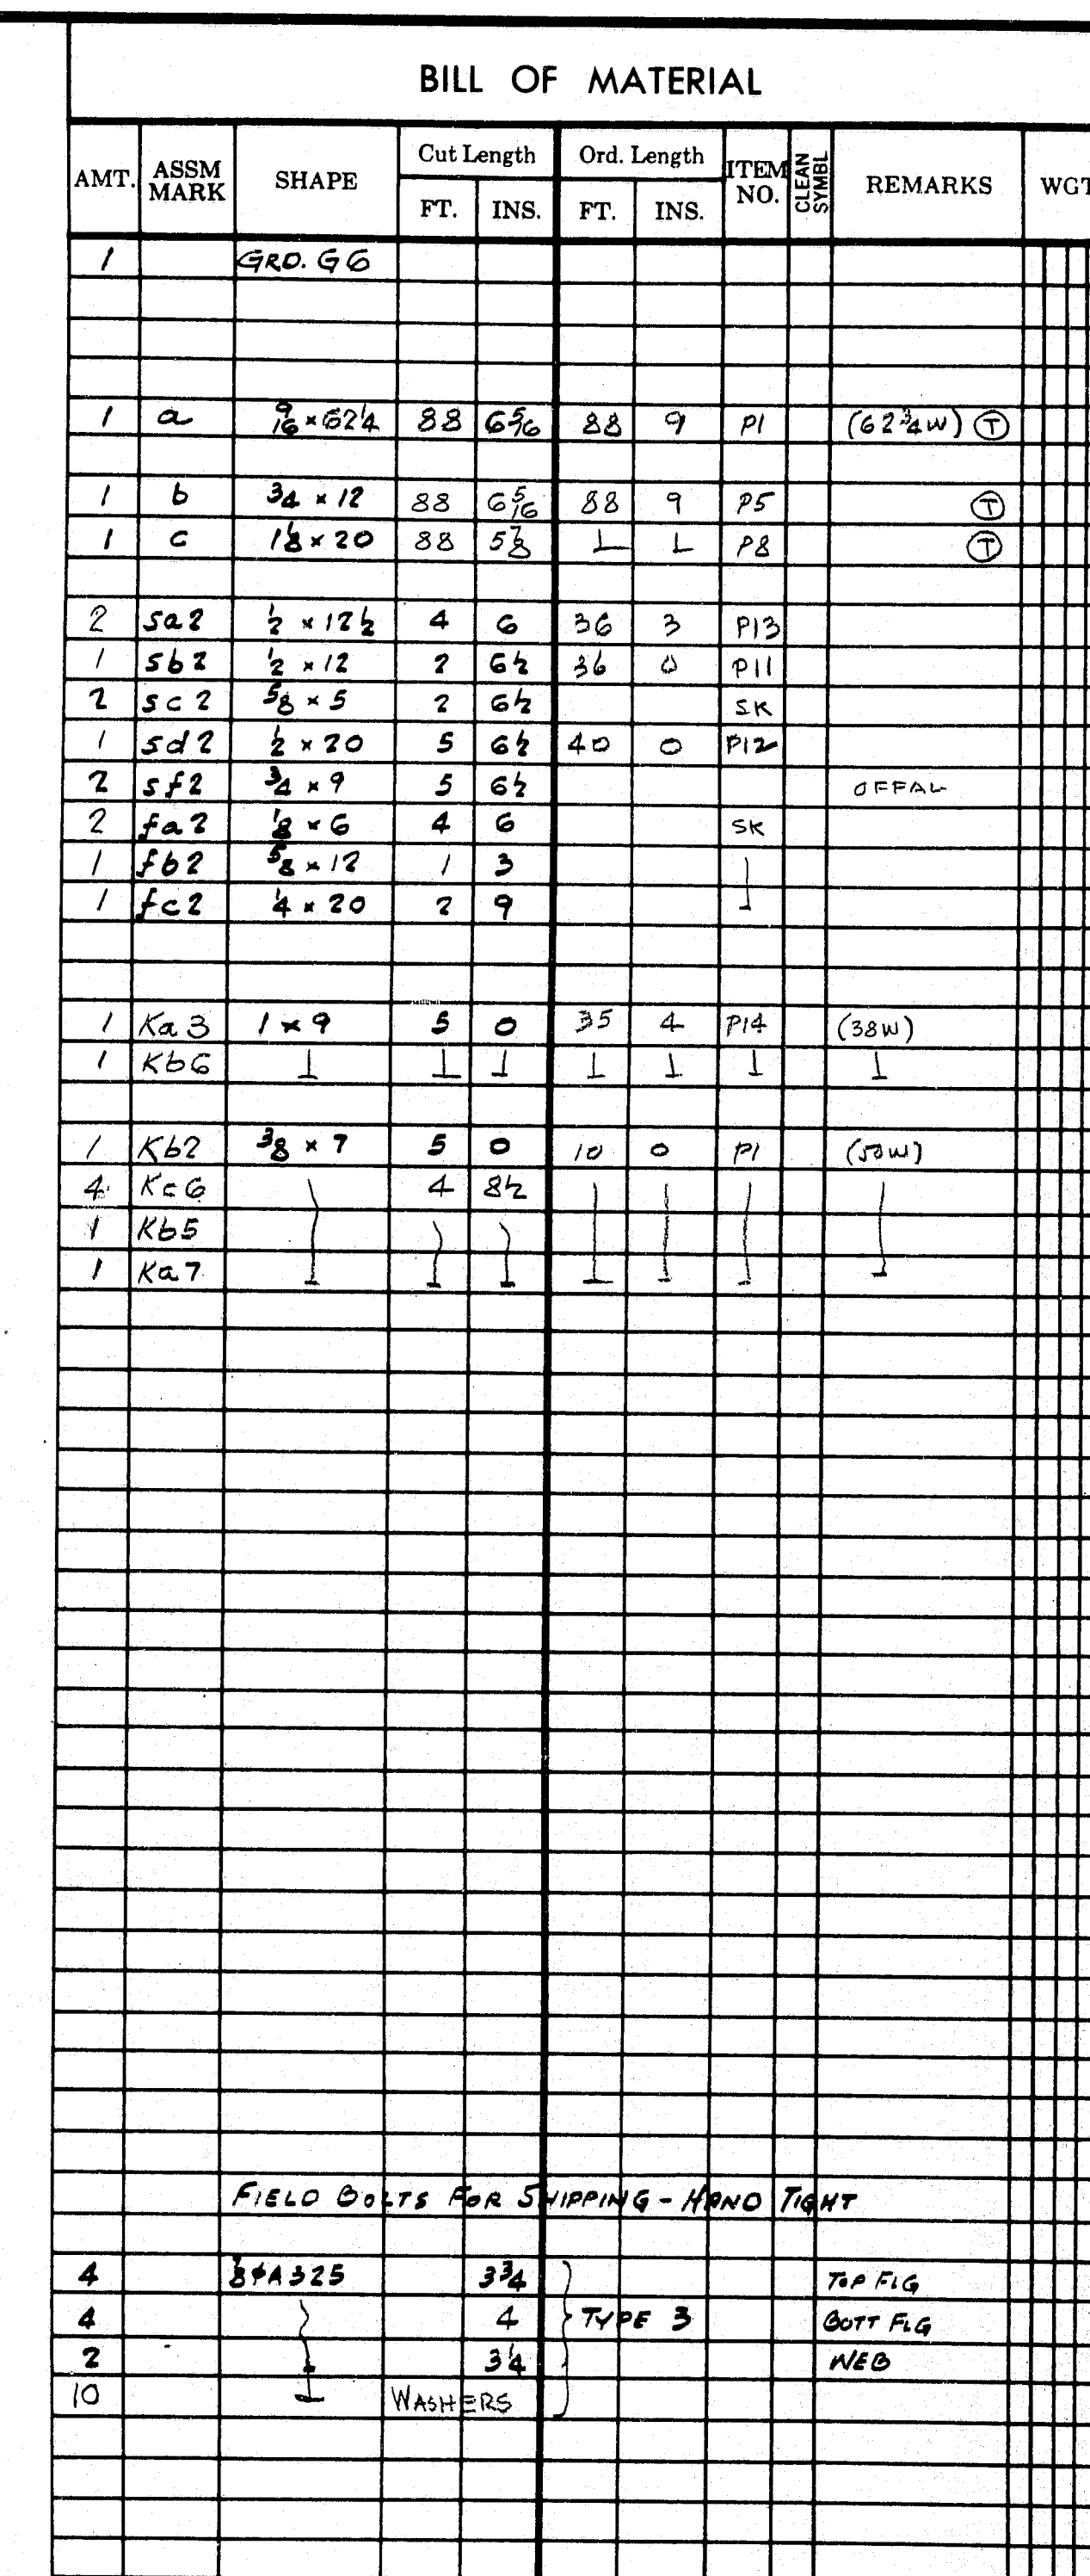 BILL OF MATERIAL
AMT. ASSM MARK SHAPE Cut Length FT. INS. Ord. Length FT. INS. ITEM NO. CLEAN SYMBL REMARKS WGT
1 GRD. G6
1 a 9/16 × 62 1/4 88 6 5/16 88 9 P1 (62 3/4 W) T
1 b 3/4 × 12 88 6 5/16 88 9 P5 T
1 c 1 1/8 × 20 88 5 7/8 P8 T
2 sa2 1/2 × 12 1/2 4 6 36 3 P13
1 sb2 1/2 × 12 2 6 1/2 36 0 P11
2 sc2 5/8 × 5 2 6 1/2 SK
1 sd2 1/2 × 20 5 6 1/2 40 0 P12
2 sf2 3/4 × 9 5 6 1/2 OFFAL
2 fa2 1/8 × 6 4 6 SK
1 fb2 5/8 × 12 1 3
1 fc2 1/4 × 20 2 9
1 Ka3 1 × 9 5 0 35 4 P14 (38W)
1 Kb6
1 Kb2 3/8 × 7 5 0 10 0 P1 (50W)
4 Kc6 4 8 1/2
1 Kb5
1 Ka7
FIELD BOLTS FOR SHIPPING - HAND TIGHT
4 7/8 φ A325 3 3/4 TOP FLG
4 4 TYPE 3 BOTT FLG
2 3 1/4 WEB
10 WASHERS